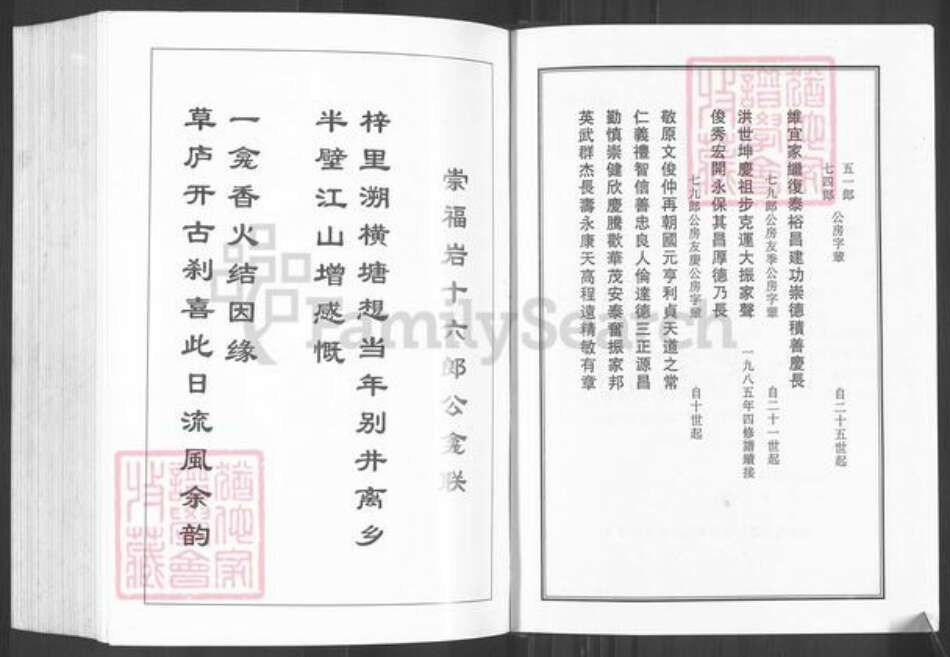 五一郎
七四郎 公房字輩 自二十五世起
維宜家繼復泰裕昌建功崇德積善慶長
七九郎公房友季公房字輩 自二十一世起
洪世坤慶祖步克運大振家聲 一九八五年四修譜續接
俊秀宏開永保其昌厚德乃長
七九郎公房友慶公房字輩 自十世起
敬原文俊仲再朝國元亨利貞天道之常
仁義禮智信善忠良人倫達德三正源昌
勤慎崇健欣慶騰歡華茂安泰奮振家邦
英武群杰長壽永康天高程遠精敏有章
崇福岩十六郎公龛联
梓里溯横塘想当年别井离乡
半壁江山增感慨
一龛香火结因缘
草庐开古刹喜此日流風余韵
FamilySearch